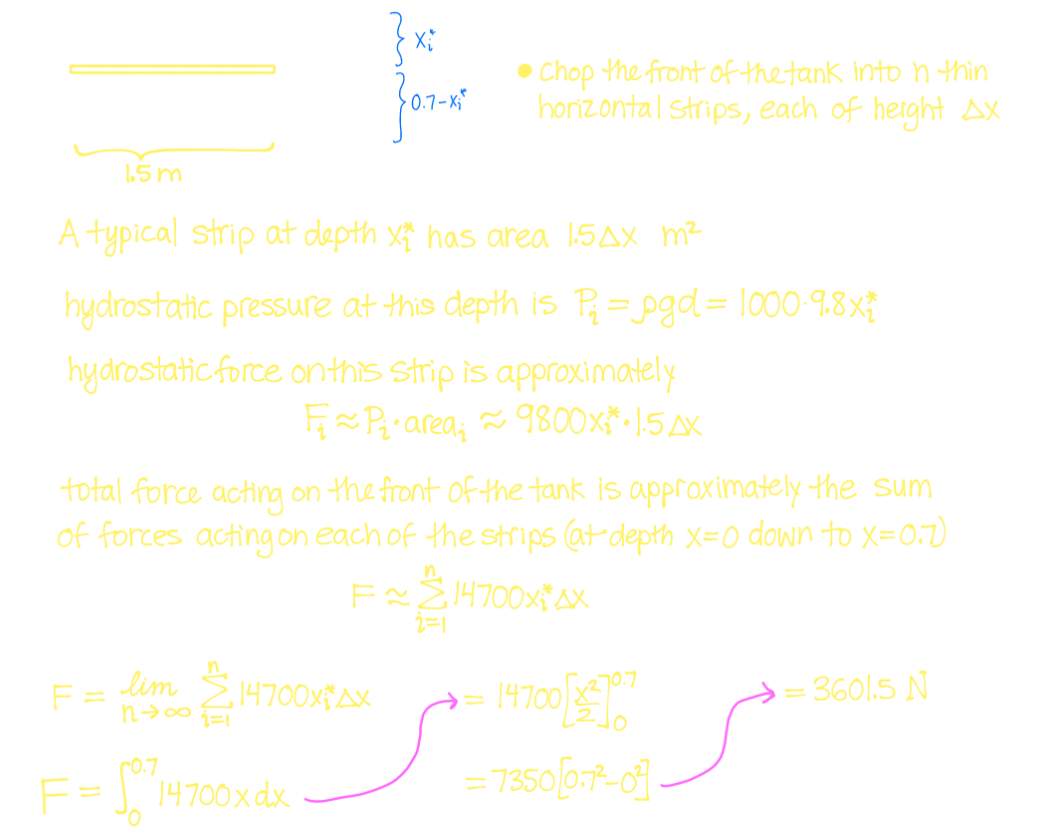 xᵢ*
0.7-xᵢ*
• Chop the front of the tank into n thin
horizontal strips, each of height Δx
1.5 m
A typical strip at depth xᵢ* has area 1.5Δx m²
hydrostatic pressure at this depth is Pᵢ = ρgd = 1000·9.8xᵢ*
hydrostatic force on this strip is approximately
Fᵢ ≈ Pᵢ · areaᵢ ≈ 9800xᵢ* · 1.5Δx
total force acting on the front of the tank is approximately the sum
of forces acting on each of the strips (at depth x=0 down to x=0.7)
F ≈ ∑ᵢ₌₁ⁿ 14700xᵢ*Δx
F = lim n→∞ ∑ᵢ₌₁ⁿ 14700xᵢ*Δx
F = ∫₀^0.7 14700x dx
= 14700[x²/2]₀^0.7
= 7350[0.7²-0²]
= 3601.5 N